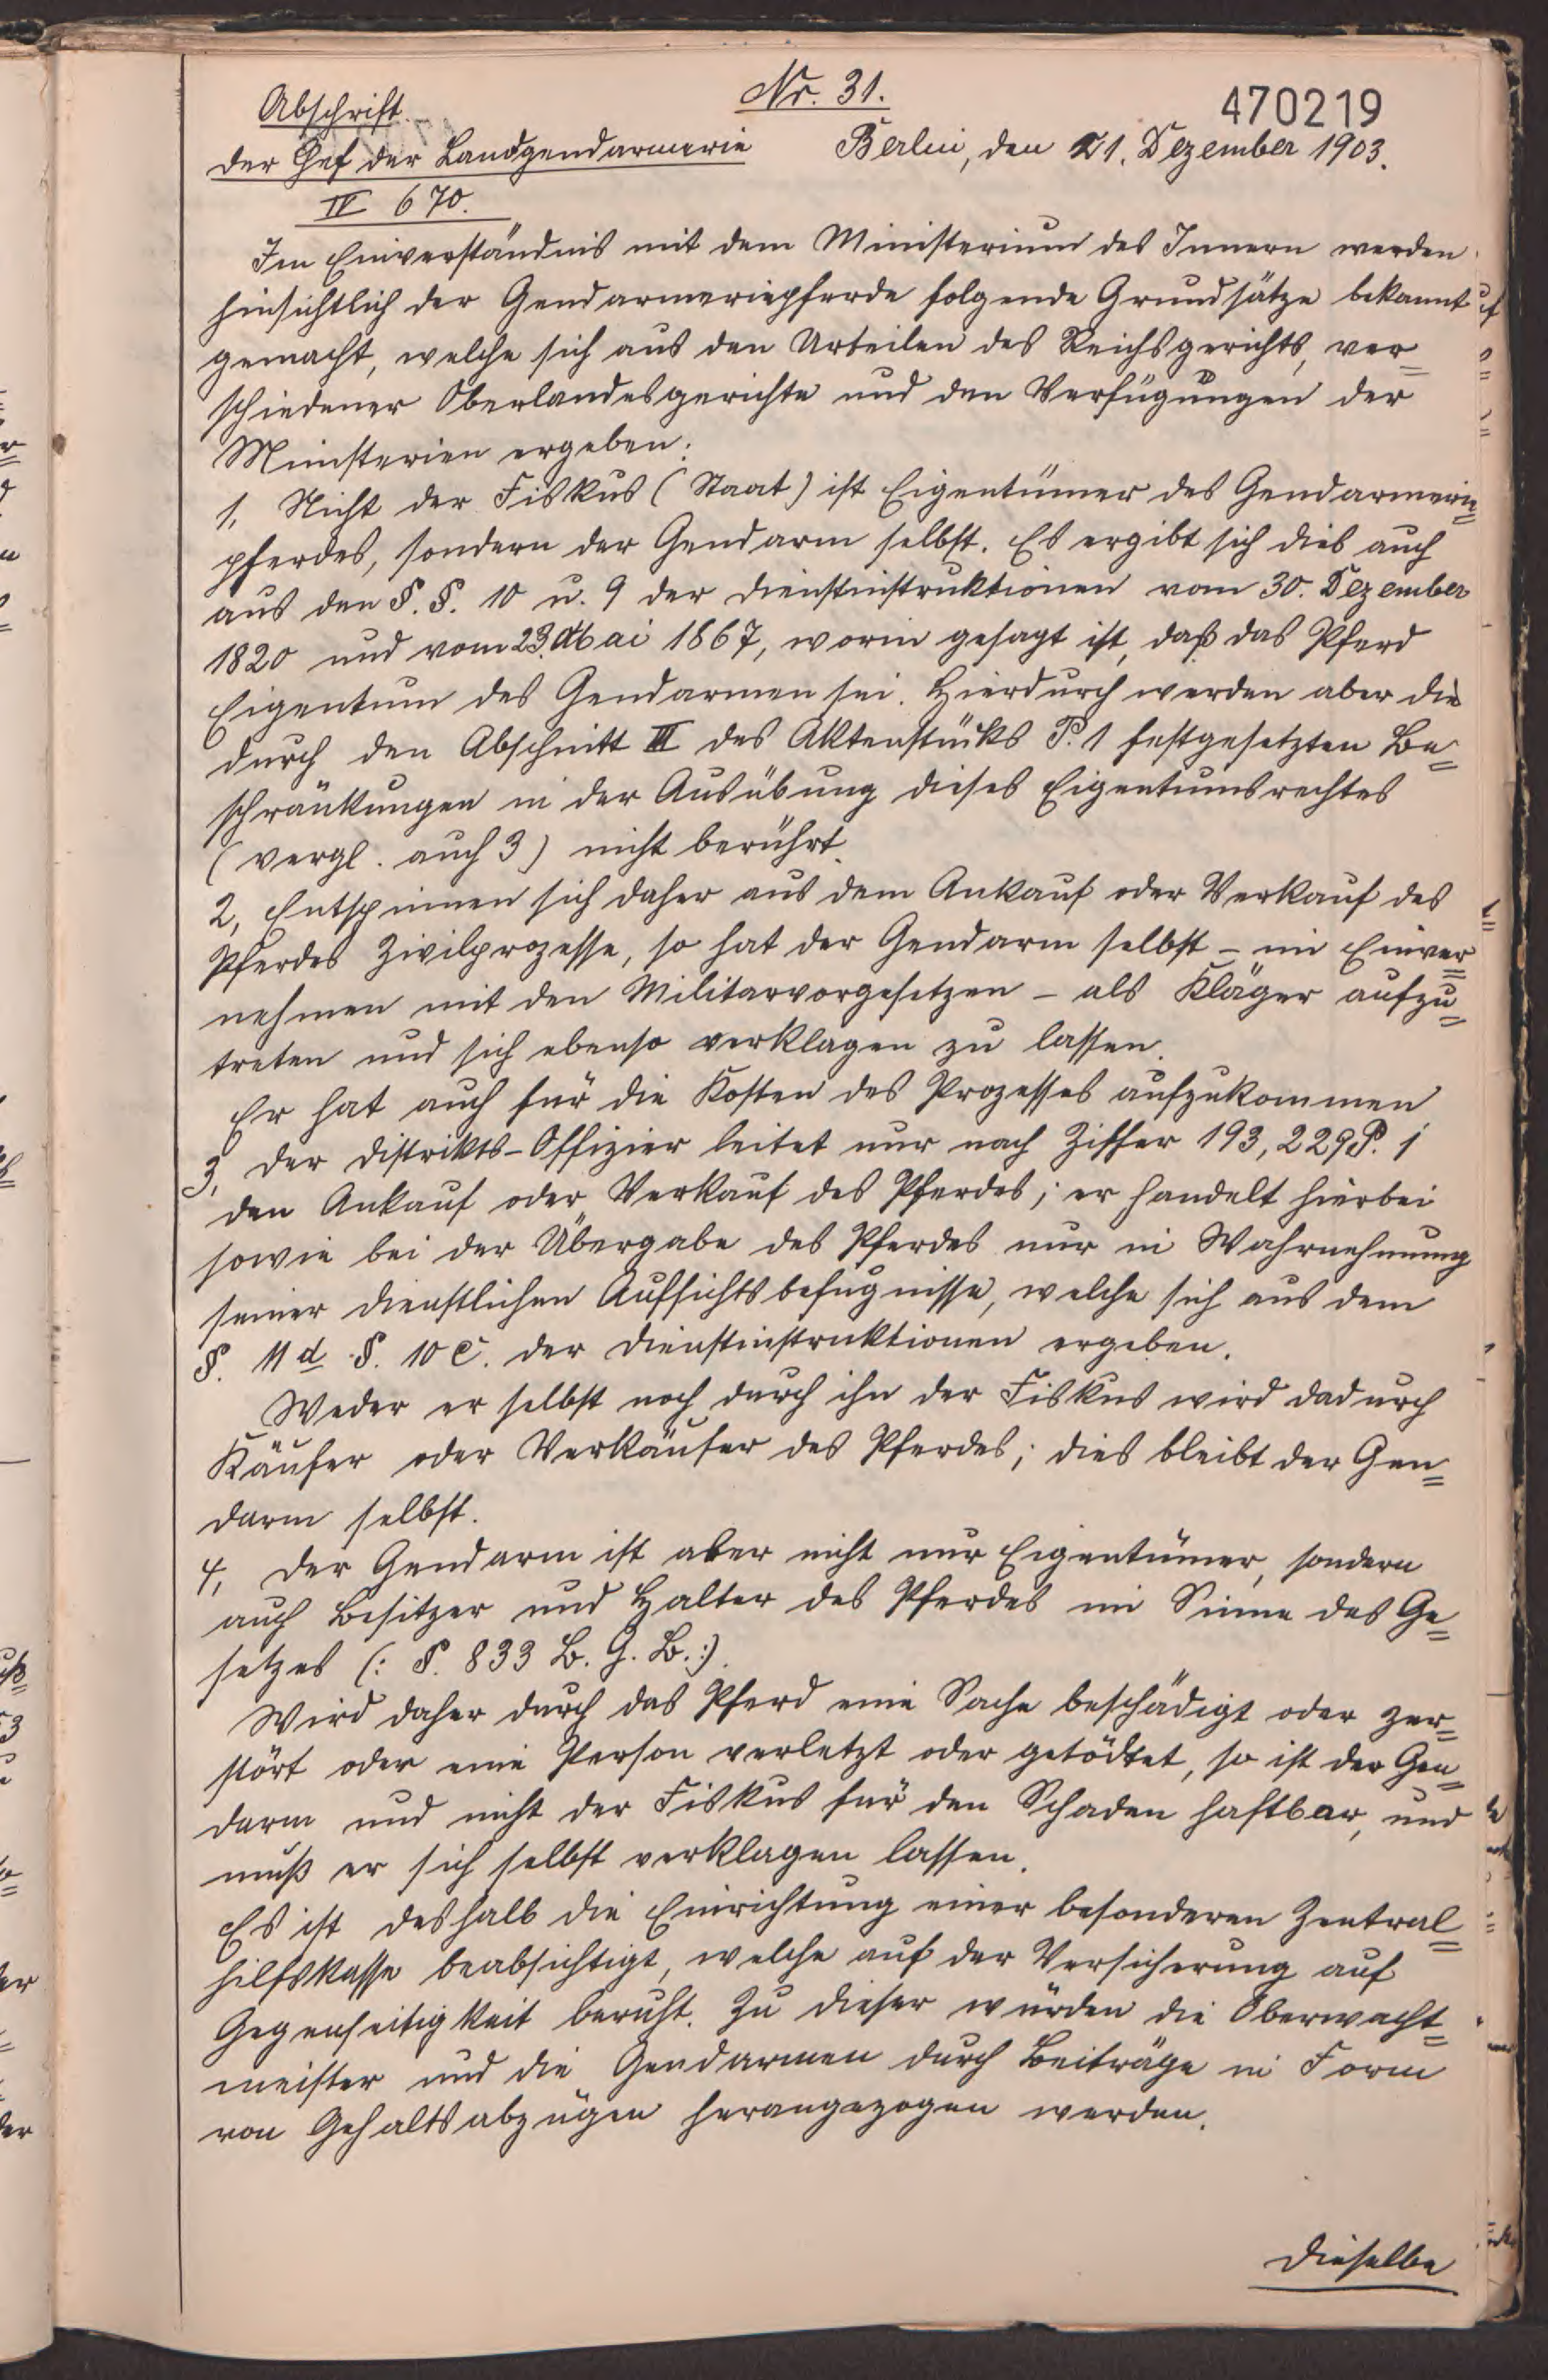 Nr. 31.
470219
Abschrift.
Der Chef der Landgendarmerie
Berlin, den 21. Dezember 1903.
IV 670.
Im Einverständnis mit dem Ministerium des Innern werden
hinsichtlich der Gendarmeriepferde folgende Grundsätze bekannt
gemacht, welche sich aus den Urteilen des Reichsgerichts, ver=
schiedener Oberlandesgerichte und den Verfügungen der
Ministerien ergeben:
1, Nicht der Fiskus (Staat) ist Eigentümer des Gendarmerie=
pferdes, sondern der Gendarm selbst. Es ergibt sich dies auch
aus den §. §. 10 u. 9 der Dienstinstruktionen vom 30. Dezember
1820 und vom 23. Mai 1867, worin gesagt ist, daß das Pferd
Eigentum des Gendarmen sei. Hierdurch werden aber die
durch den Abschnitt III des Aktenstücks P. 1 festgesetzten Be=
schränkungen in der Ausübung dieses Eigentumsrechtes
(vergl. auch 3) nicht berührt.
2, Entspinnen sich daher aus dem Ankauf oder Verkauf des
Pferdes Zivilprozesse, so hat der Gendarm selbst - im Einver=
nehmen mit den Militärvorgesetzen - als Kläger aufzu=
treten und sich ebenso verklagen zu lassen.
Er hat auch für die Kosten des Prozesses aufzukommen
3, Der Distrikts-Offizier leitet nur nach Ziffer 193, 229 P. 1
den Ankauf oder Verkauf des Pferdes; er handelt hierbei
sowie bei der Übergabe des Pferdes nur in Wahrnehmung
seiner dienstlichen Aufsichtsbefugnisse, welche sich aus dem
§. 11 d §. 10 c. der Dienstinstruktionen ergeben.
Weder er selbst noch durch ihn der Fiskus wird dadurch
Käufer oder Verkäufer des Pferdes; dies bleibt der Gen=
darm selbst.
4, Der Gendarm ist aber nicht nur Eigentümer, sondern
auch Besitzer und Halter des Pferdes im Sinne des Ge=
setzes (: §. 833 B. G. B. :).
Wird daher durch das Pferd eine Sache beschädigt oder zer=
stört oder eine Person verletzt oder getödtet, so ist der Gen=
darm und nicht der Fiskus für den Schaden haftbar, und
muß er sich selbst verklagen lassen.
Es ist deshalb die Einrichtung einer besonderen Zentral=
hilfskasse beabsichtigt, welche auf der Versicherung auf
Gegenseitigkeit beruht. Zu dieser würden die Oberwacht=
meister und die Gendarmen durch Beiträge in Form
von Gehaltsabzügen herangezogen werden.
Dieselbe